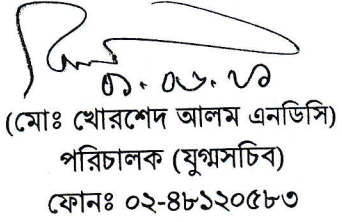 (মোঃ খোরশেদ আলম এনডিসি)
পরিচালক (যুগ্মসচিব)
ফোনঃ ০২-৪৮১২০৫৮৩